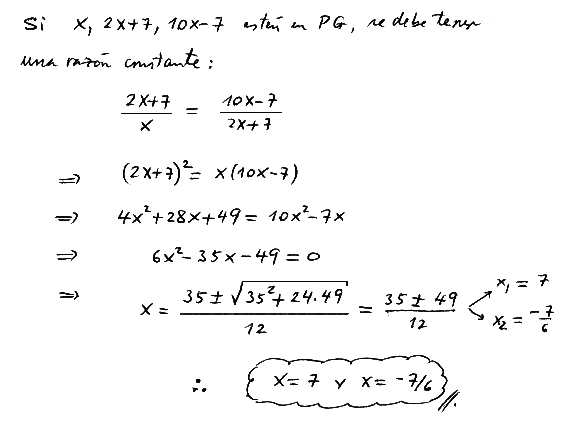 Si x, 2x+7, 10x-7 están en PG, se debe tener
una razón constante:
(2x+7)/x = (10x-7)/(2x+7)
⇒ (2x+7)² = x(10x-7)
⇒ 4x²+28x+49 = 10x²-7x
⇒ 6x²-35x-49 = 0
⇒ x = (35 ± √(35²+24·49))/12 = (35 ± 49)/12 ↗ x₁ = 7 ↘ x₂ = -7/6
∴ x = 7 ∨ x = -7/6 //.